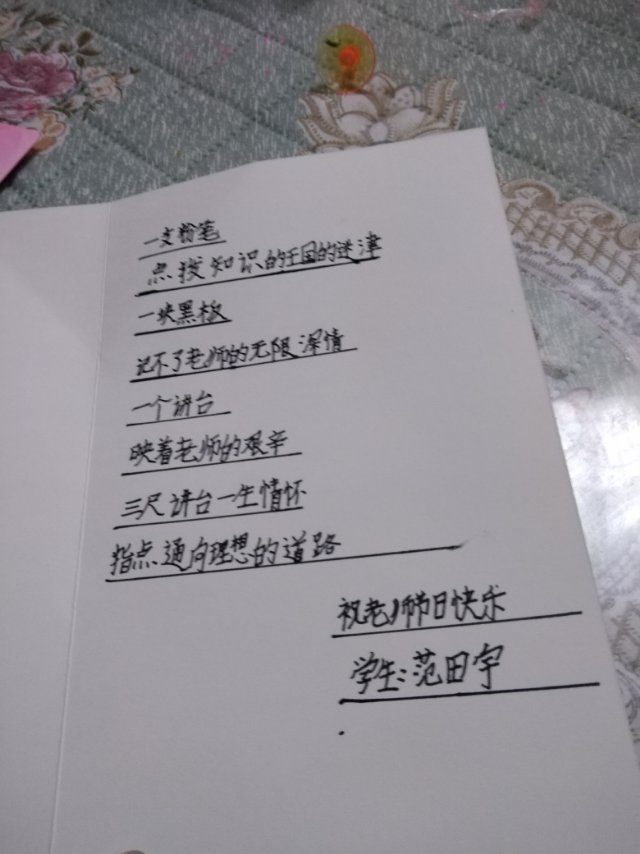 一支粉笔
点拨知识的王国的迷津
一块黑板
记不了老师的无限深情
一个讲台
映着老师的艰辛
三尺讲台一生情怀
指点通向理想的道路
祝老师节日快乐
学生:范田宇